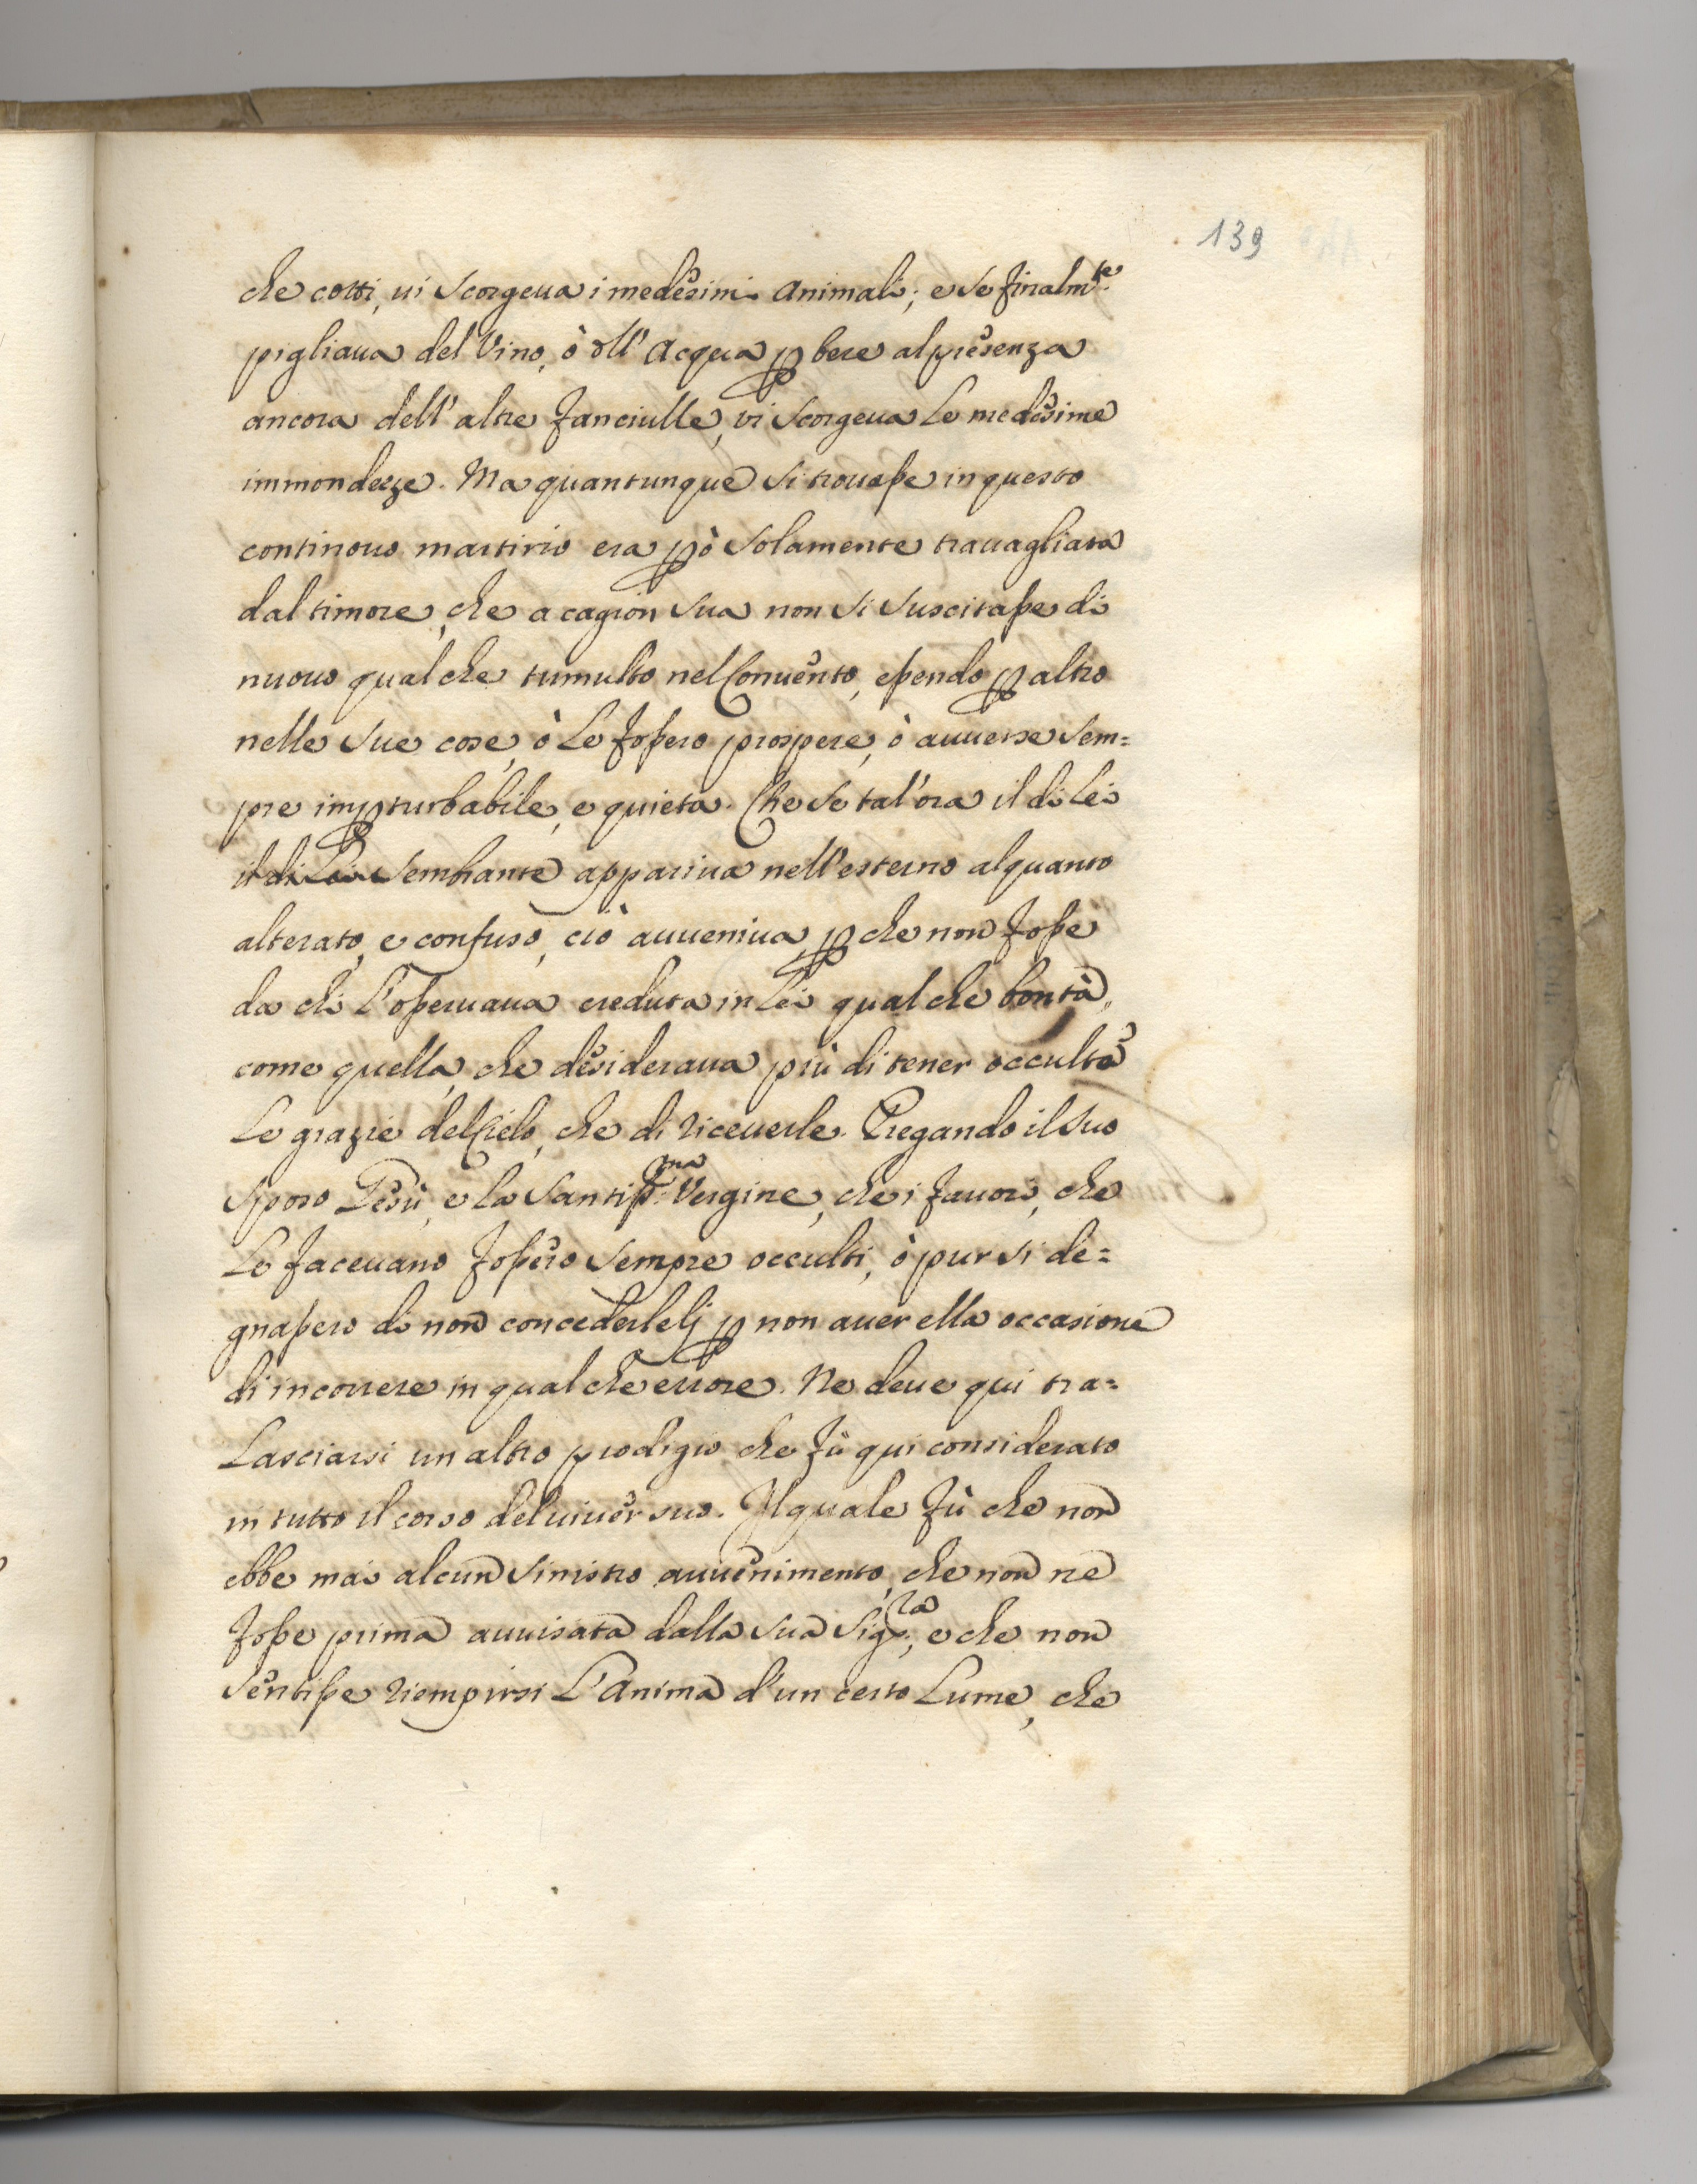 139
che cotti, ui scorgeua i medesimi Animali; e se finalm.te
pigliaua del Vino, ò dll' Acqua p bere al presenza
ancora dell' altre fanciulle, vi scorgeua le medesime
immondezze. Ma quantunque si trouasse in questo
continouo martirio era pò solamente trauagliata
dal timore, che a cagion sua non si suscitasse di
nuouo qualche tumulto nel Conuento, essendo p altro
nelle sue cose, ò le fossero prospere, ò auuerse sem=
pre impturbabile, e quieta. Che se tal'ora il di lei
il di Lei sembiante appariua nell'esterno alquanto
alterato, e confuso, ciò auueniua p che non fosse
da chi l'osseruaua creduta in lei qualche bontà,
come quella, che desideraua più di tener occulte
le grazie del Cielo, che di riceuerle. Pregando il suo
sposo Gesù, e la Santiss.ma Vergine, che i fauori, che
le faceuano fossero sempre occulti, ò pur si de=
gnassero di non concederlelj p non auer ella occasione
di incorrere in qualche errore. Ne deue qui tra=
lasciarsi un altro prodigio che fù qui considerato
in tutto il corso del uiuer suo. Il quale fù che non
ebbe mai alcun sinistro auuenimento, che non ne
fosse prima auuisata dalla sua Sig.ra, e che non
sentisse riempirsi l'Anima d'un certo lume, che